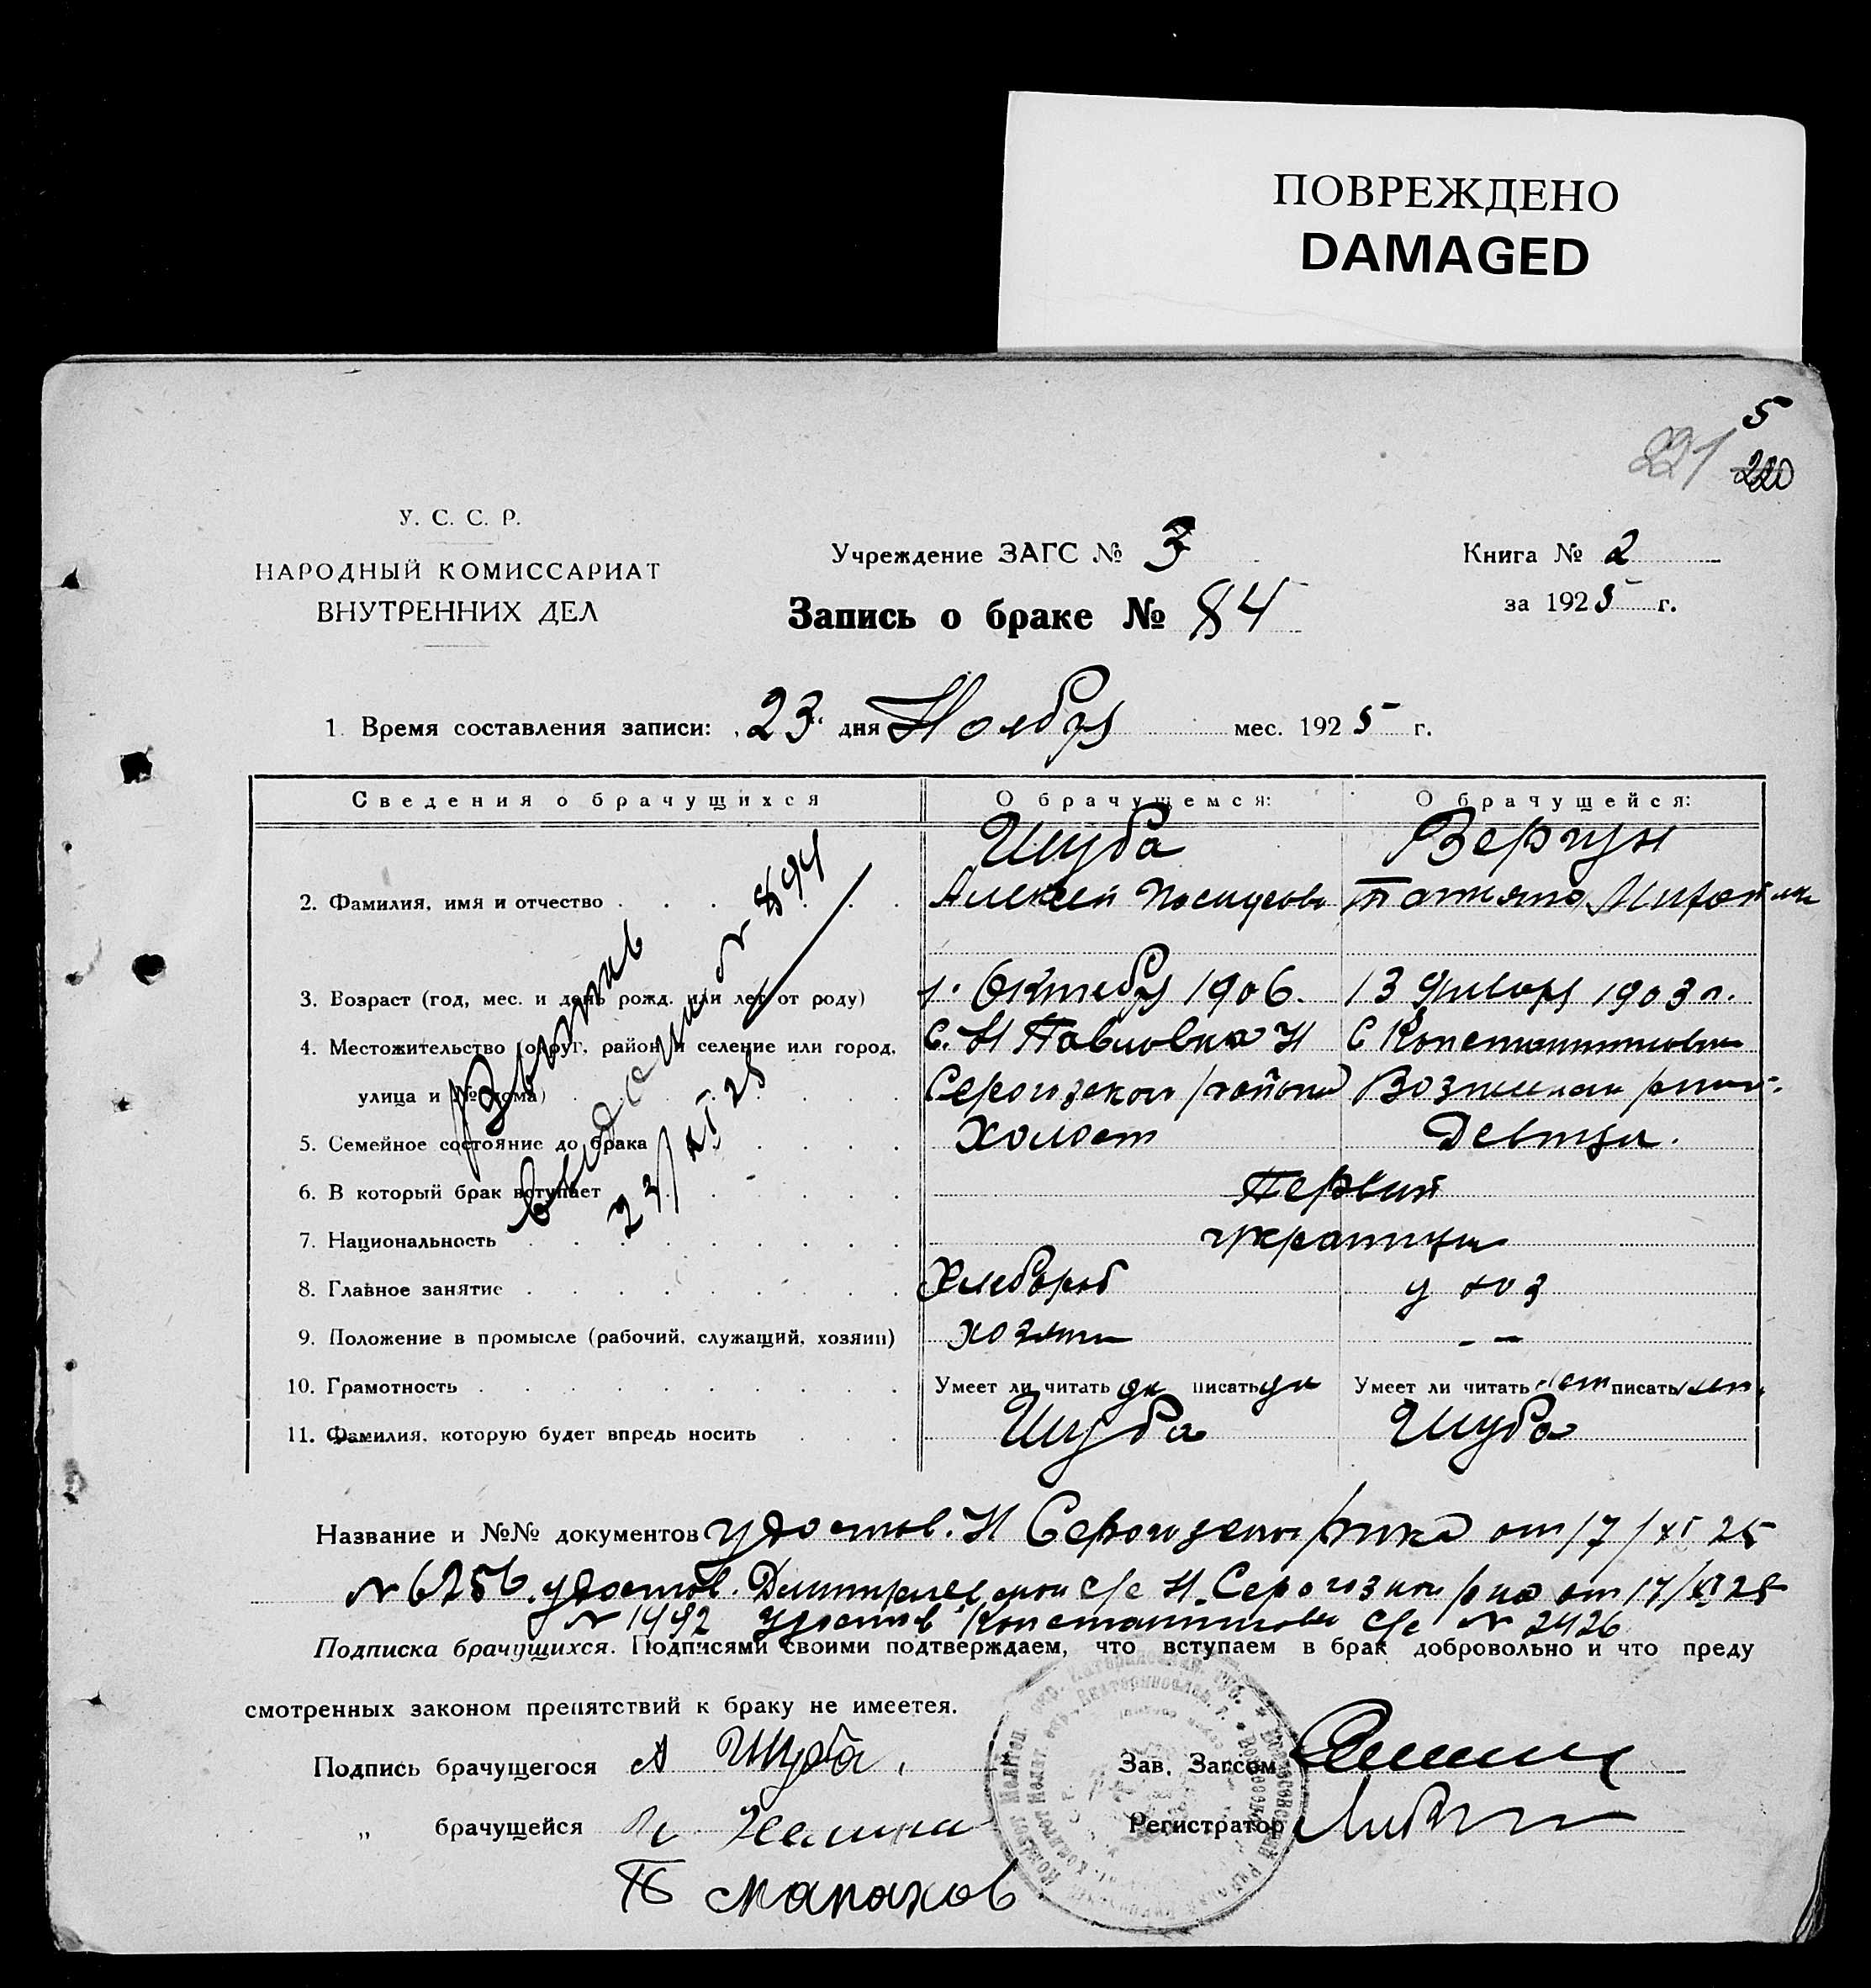 ПОВРЕЖДЕНО
DAMAGED
5
221 220
У. С. С. Р.
НАРОДНЫЙ КОМИССАРИАТ
ВНУТРЕННИХ ДЕЛ
Учреждение ЗАГС № 3
Запись о браке № 84
Книга № 2
за 1925 г.
1. Время составления записи: 23 дня Ноября мес. 1925 г.
Сведения о брачущихся О брачущемся: О брачущейся:
Шуба Вергун
2. Фамилия, имя и отчество Алексей Татьяна
3. Возраст (год, мес. и день рожд. или лет от роду) 1. Октября 1906. 13 Января 1903 г.
4. Местожительство (округ, район и селение или город, С. Н Павловка Н С Константиновка
улица и № дома) Серогозского района
5. Семейное состояние до брака Холост Девица.
6. В который брак вступает Первый
7. Национальность украинцы
8. Главное занятие Хлебороб у хоз
9. Положение в промысле (рабочий, служащий, хозяин) хозяин - -
10. Грамотность Умеет ли читать да писать да Умеет ли читать нет писать нет.
11. Фамилия, которую будет впредь носить Шуба Шуба
23/XI 25
Название и №№ документов удостов. Н Серогозского рика от 17/XI 25
№ 6256. удостов. с/с Н. Серогозского р на от 17/XI 25
№ 1492 удостов Константиновск с/с № 2426
Подписка брачущихся. Подписями своими подтверждаем, что вступаем в брак добровольно и что преду
смотренных законом препятствий к браку не имеетея.
Подпись брачущегося А Шуба. Зав. Загсом
„ брачущейся Регистратор